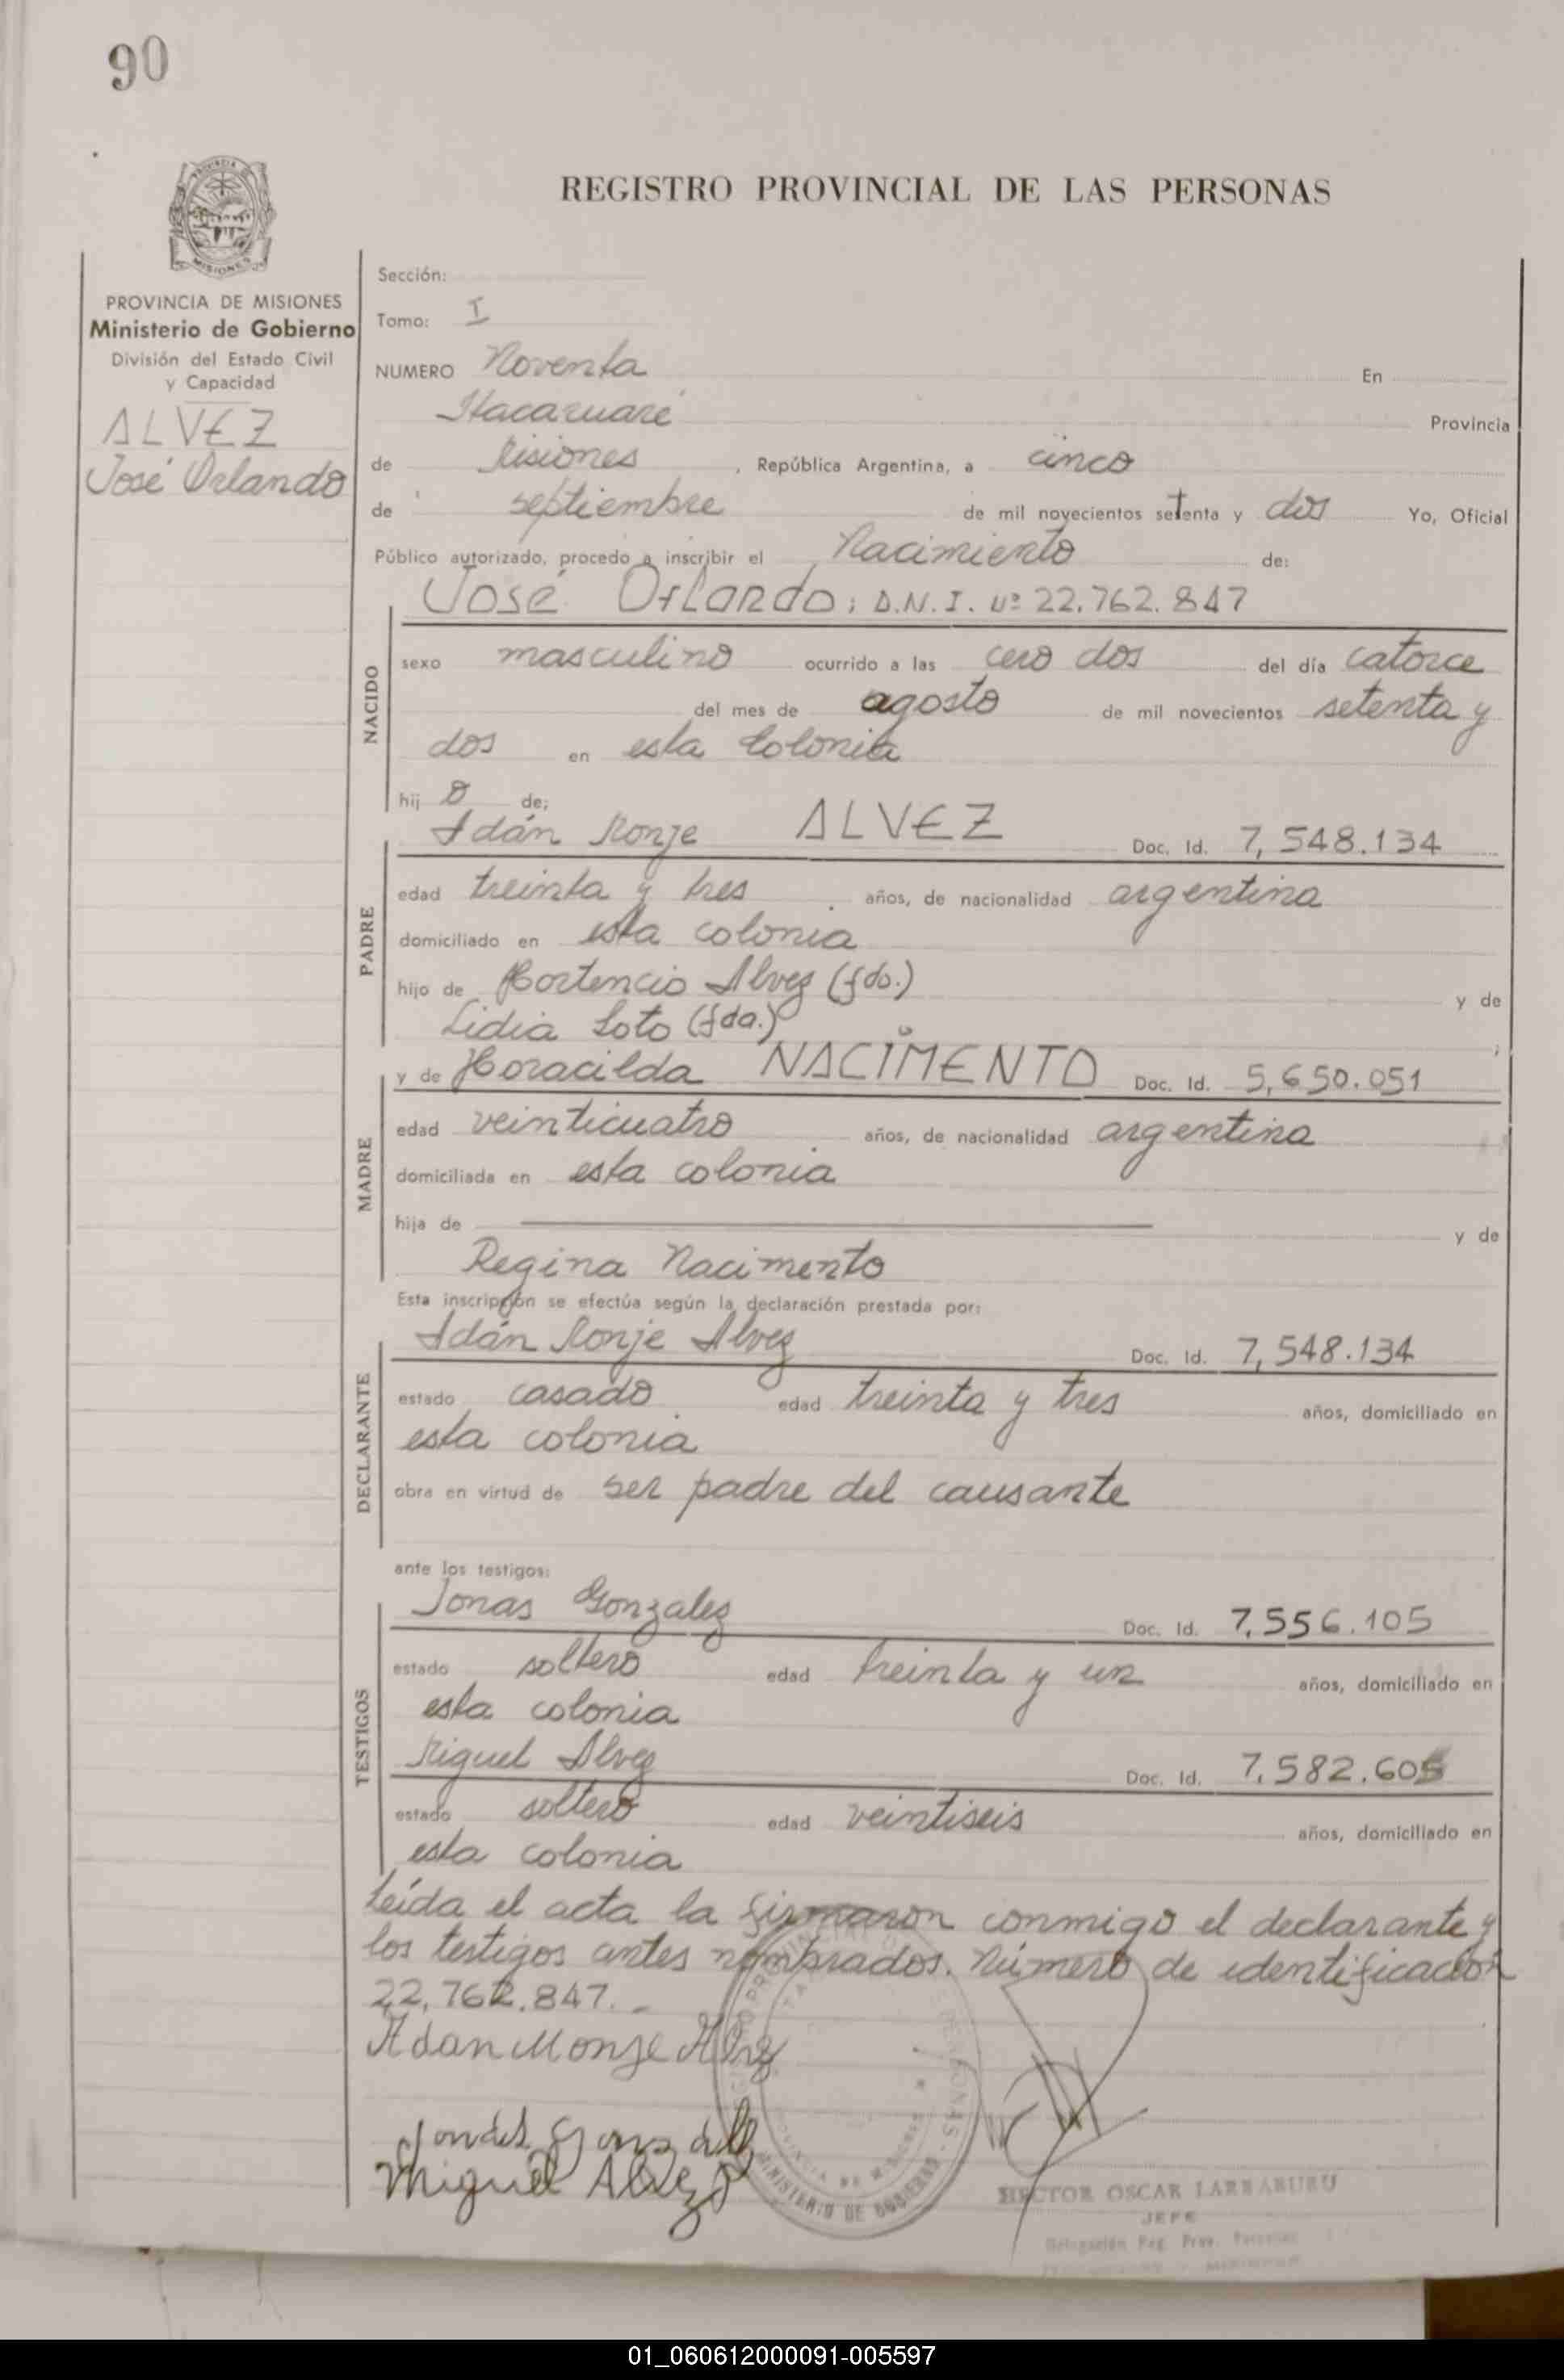 90
REGISTRO PROVINCIAL DE LAS PERSONAS
PROVINCIA DE MISIONES
Ministerio de Gobierno
División del Estado Civil
y Capacidad
ALVEZ
José Orlando
Sección:
Tomo: I
NUMERO Noventa En
Itacaruaré Provincia
de Misiones , República Argentina, a cinco
de septiembre de mil novecientos setenta y dos Yo, Oficial
Público autorizado, procedo a inscribir el Nacimiento de:
José Orlando; D.N.I. Nº 22.762.847
NACIDO
sexo masculino ocurrido a las cero dos del día catorce
del mes de agosto de mil novecientos setenta y
dos en esta Colonia
hij o de;
Adán Monje ALVEZ Doc. Id. 7,548.134
PADRE
edad treinta y tres años, de nacionalidad argentina
domiciliado en esta colonia
hijo de Hortencio Alvez (fdo.) y de
Lidia Soto (fda.) ;
y de Horacilda NACIMENTO Doc. Id. 5,650.051
MADRE
edad veinticuatro años, de nacionalidad argentina
domiciliada en esta colonia
hija de y de
Regina Nacimento
Esta inscripción se efectúa según la declaración prestada por:
Adán Monje Alvez Doc. Id. 7,548.134
DECLARANTE
estado casado edad treinta y tres años, domiciliado en
esta colonia
obra en virtud de ser padre del causante
ante los testigos:
Jonas Gonzalez Doc. Id. 7.556.105
TESTIGOS
estado soltero edad treinta y un años, domiciliado en
esta colonia
Miguel Alvez Doc. Id. 7.582.605
estado soltero edad veintiseis años, domiciliado en
esta colonia
Leída el acta la firmaron conmigo el declarante y
los testigos antes nombrados. Número de identificación
22,762.847.-
Adan Monje Alvez
Miguel Alvez
MINISTERIO DE GOBIERNO
HECTOR OSCAR LARRABURU
JEFE
Delegación Reg. Prov.
01_060612000091-005597